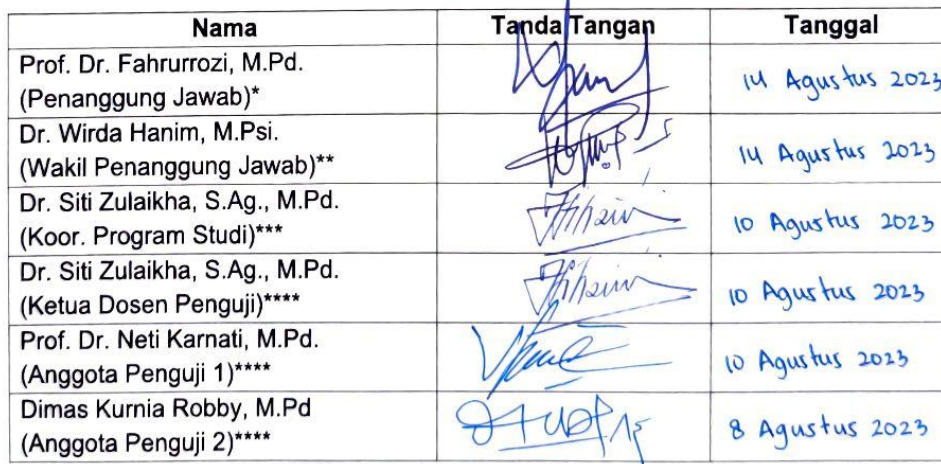 Nama Tanda Tangan Tanggal
Prof. Dr. Fahrurrozi, M.Pd.
(Penanggung Jawab)* 14 Agustus 2023
Dr. Wirda Hanim, M.Psi.
(Wakil Penanggung Jawab)** 14 Agustus 2023
Dr. Siti Zulaikha, S.Ag., M.Pd.
(Koor. Program Studi)*** 10 Agustus 2023
Dr. Siti Zulaikha, S.Ag., M.Pd.
(Ketua Dosen Penguji)**** 10 Agustus 2023
Prof. Dr. Neti Karnati, M.Pd.
(Anggota Penguji 1)**** 10 Agustus 2023
Dimas Kurnia Robby, M.Pd
(Anggota Penguji 2)**** 8 Agustus 2023